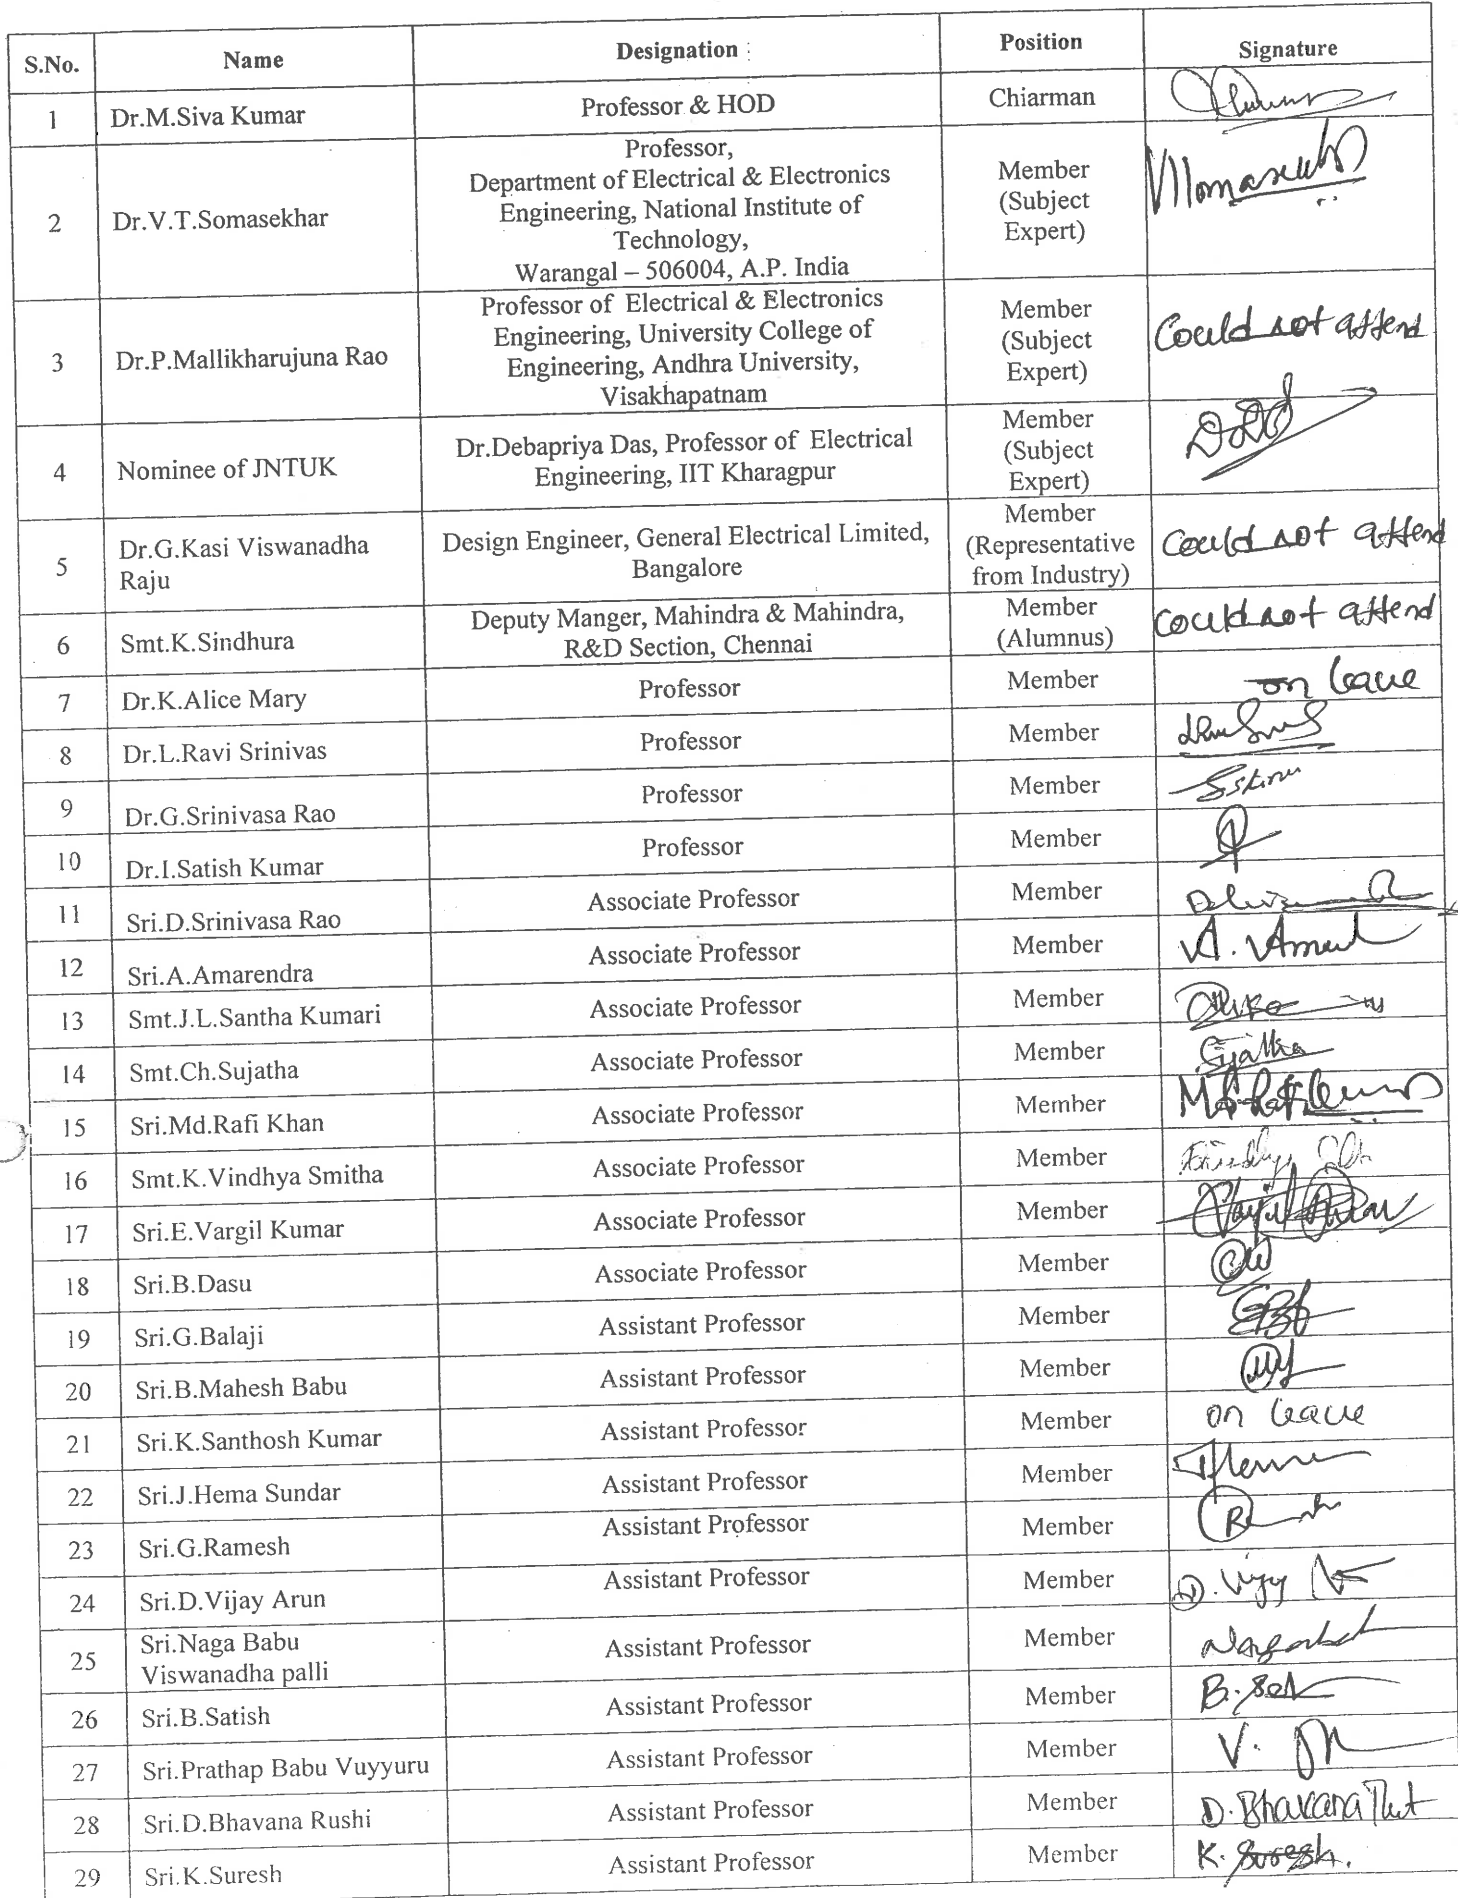 S.No. Name Designation : Position Signature
1 Dr.M.Siva Kumar Professor & HOD Chiarman
2 Dr.V.T.Somasekhar Professor,
Department of Electrical & Electronics
Engineering, National Institute of
Technology,
Warangal – 506004, A.P. India
Member
(Subject
Expert)
3 Dr.P.Mallikharujuna Rao Professor of Electrical & Electronics
Engineering, University College of
Engineering, Andhra University,
Visakhapatnam
Member
(Subject
Expert)
Could not attend
4 Nominee of JNTUK Dr.Debapriya Das, Professor of Electrical
Engineering, IIT Kharagpur
Member
(Subject
Expert)
5 Dr.G.Kasi Viswanadha
Raju
Design Engineer, General Electrical Limited,
Bangalore
Member
(Representative
from Industry)
Could not attend
6 Smt.K.Sindhura Deputy Manger, Mahindra & Mahindra,
R&D Section, Chennai
Member
(Alumnus)
Could not attend
7 Dr.K.Alice Mary Professor Member on leave
8 Dr.L.Ravi Srinivas Professor Member
9 Dr.G.Srinivasa Rao Professor Member
10 Dr.I.Satish Kumar Professor Member
11 Sri.D.Srinivasa Rao Associate Professor Member
12 Sri.A.Amarendra Associate Professor Member
13 Smt.J.L.Santha Kumari Associate Professor Member
14 Smt.Ch.Sujatha Associate Professor Member
15 Sri.Md.Rafi Khan Associate Professor Member
16 Smt.K.Vindhya Smitha Associate Professor Member
17 Sri.E.Vargil Kumar Associate Professor Member
18 Sri.B.Dasu Associate Professor Member
19 Sri.G.Balaji Assistant Professor Member
20 Sri.B.Mahesh Babu Assistant Professor Member
21 Sri.K.Santhosh Kumar Assistant Professor Member on leave
22 Sri.J.Hema Sundar Assistant Professor Member
23 Sri.G.Ramesh Assistant Professor Member
24 Sri.D.Vijay Arun Assistant Professor Member D. Vijay
25 Sri.Naga Babu
Viswanadha palli
Assistant Professor Member
26 Sri.B.Satish Assistant Professor Member
27 Sri.Prathap Babu Vuyyuru Assistant Professor Member
28 Sri.D.Bhavana Rushi Assistant Professor Member D. Bhavana
29 Sri.K.Suresh Assistant Professor Member K. Suresh.